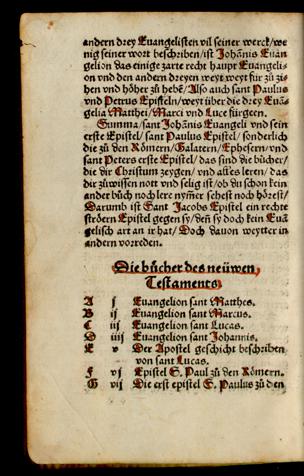 andern drey Euangelisten vil seiner werck/ we
nig seiner wort beschriben/ ist Johānis Euan
gelion das einige zarte recht haupt Euangeli-
on vnd den andern dreyen weyt weyt für zů zi-
hen vnd höher zů hebē/ Also auch sant Paulus
vnd Petrus Episteln/ weyt über die drey Euā
gelia Matthei/ Marci vnd Luce fürgeen.
Summa/ sant Johānis Euangeli vnd sein
erste Epistel/ sant Paulus Epistel/ sonderlich
die zů den Römern/ Galatern/ Ephesern/ vnd
sant Peters erste Epistel/ das sind die bücher/
die dir Christum zeygen/ vnd alles leren/ das
dir zůwissen nott vnd selig ist/ ob du schon kein
ander bůch noch lere nymer sehest noch hörest/
Darumb ist Sant Jacobs Epistel ein rechte
ströern Epistel gegen sy/ deñ sy doch kein Euā
gelisch art an ir hat/ Doch dauon weytter in
andern vorreden.
Die bücher des neüwen
Testaments
A j Euangelion sant Matthes.
B ij Euangelion sant Marcus.
C iij Euangelion sant Lucas.
D iiij Euangelion sant Johannis.
E v Der Apostel geschicht beschriben
von sant Lucas.
F vj Epistel S. Paul zů den Römern.
G vij Die erst epistel S. Paulus zů den